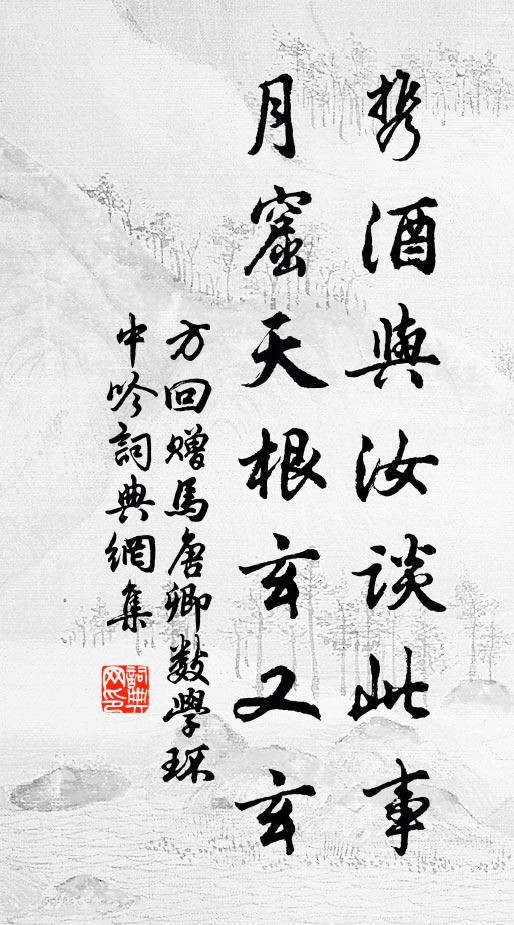 携酒與汝談此事
月窟天根玄又玄
方回贈馬唐卿數學環
中吟詞典網集
詞典
网印